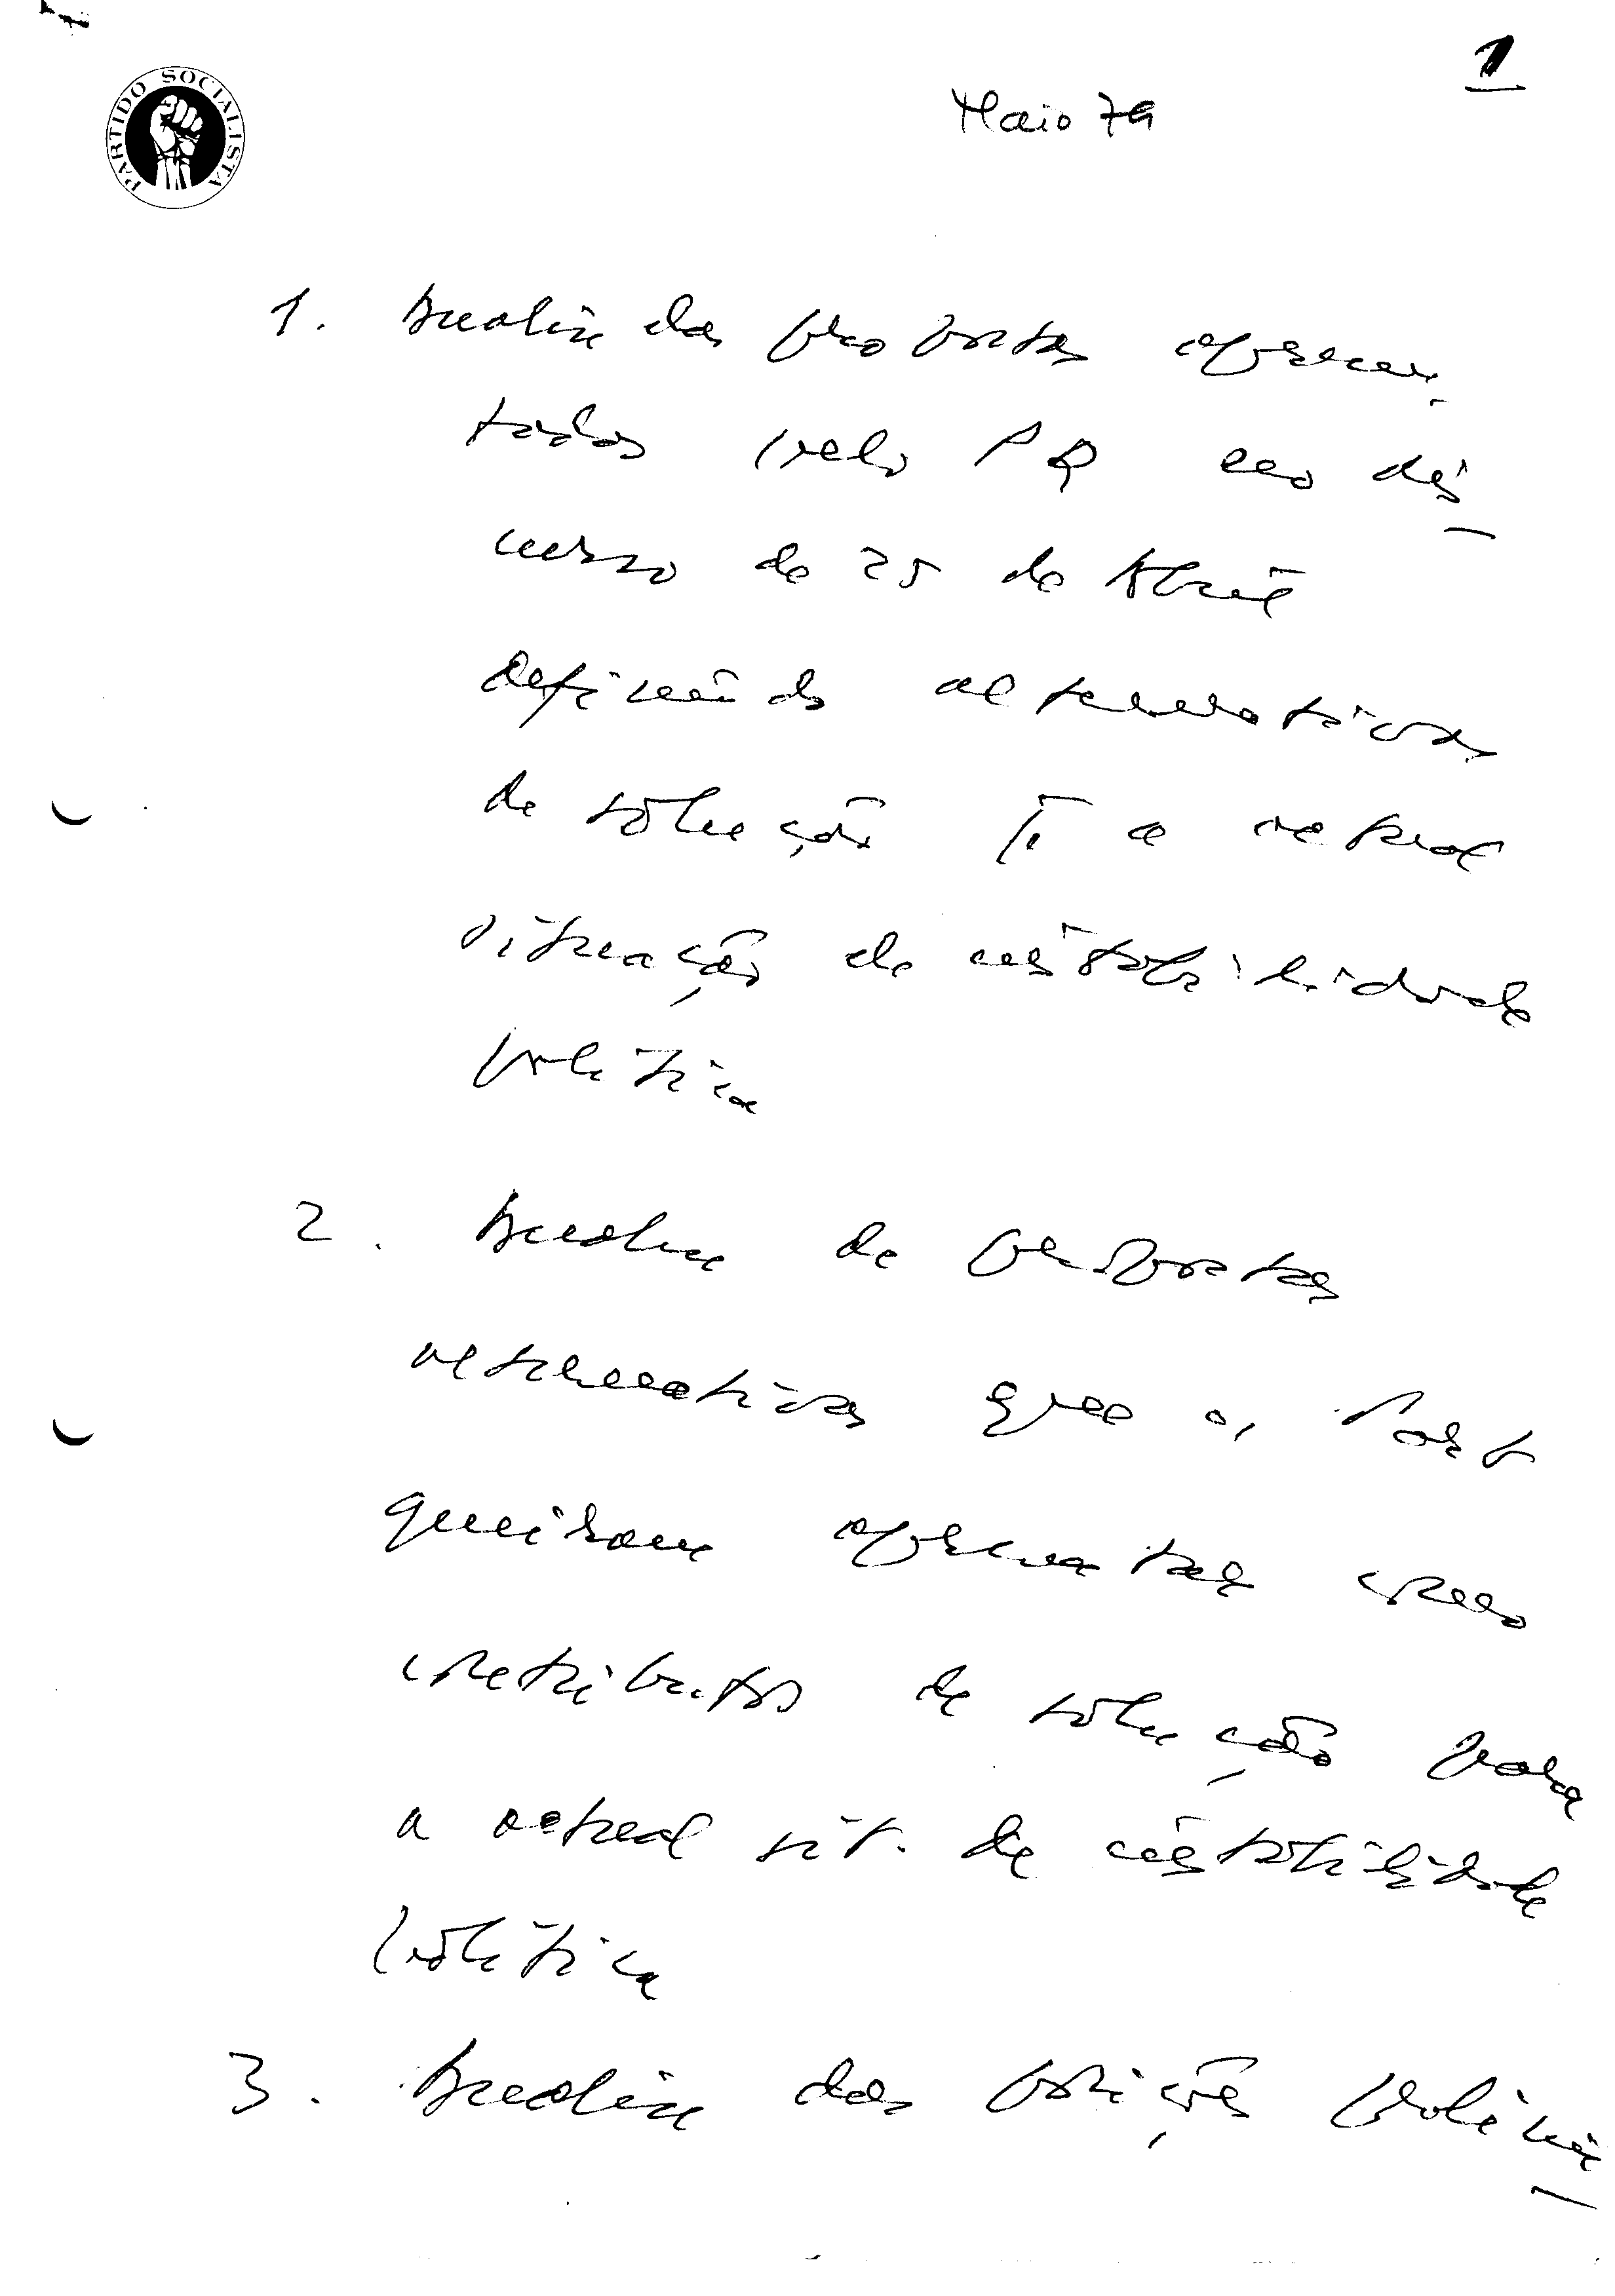 1
PARTIDO SOCIALISTA
Maio 79
1. Analise das propostas apresen-
tadas pelo PR no dis-
curso de 25 de Abril
definindo alternativas
de solução p. a actual
situação de instabilidade
política
2. Analise de propostas
alternativas que os Part
queiram apresentar como
contributos de solução para
a actual sit. de instabilidade
política
3. Analise das posições prelimi-